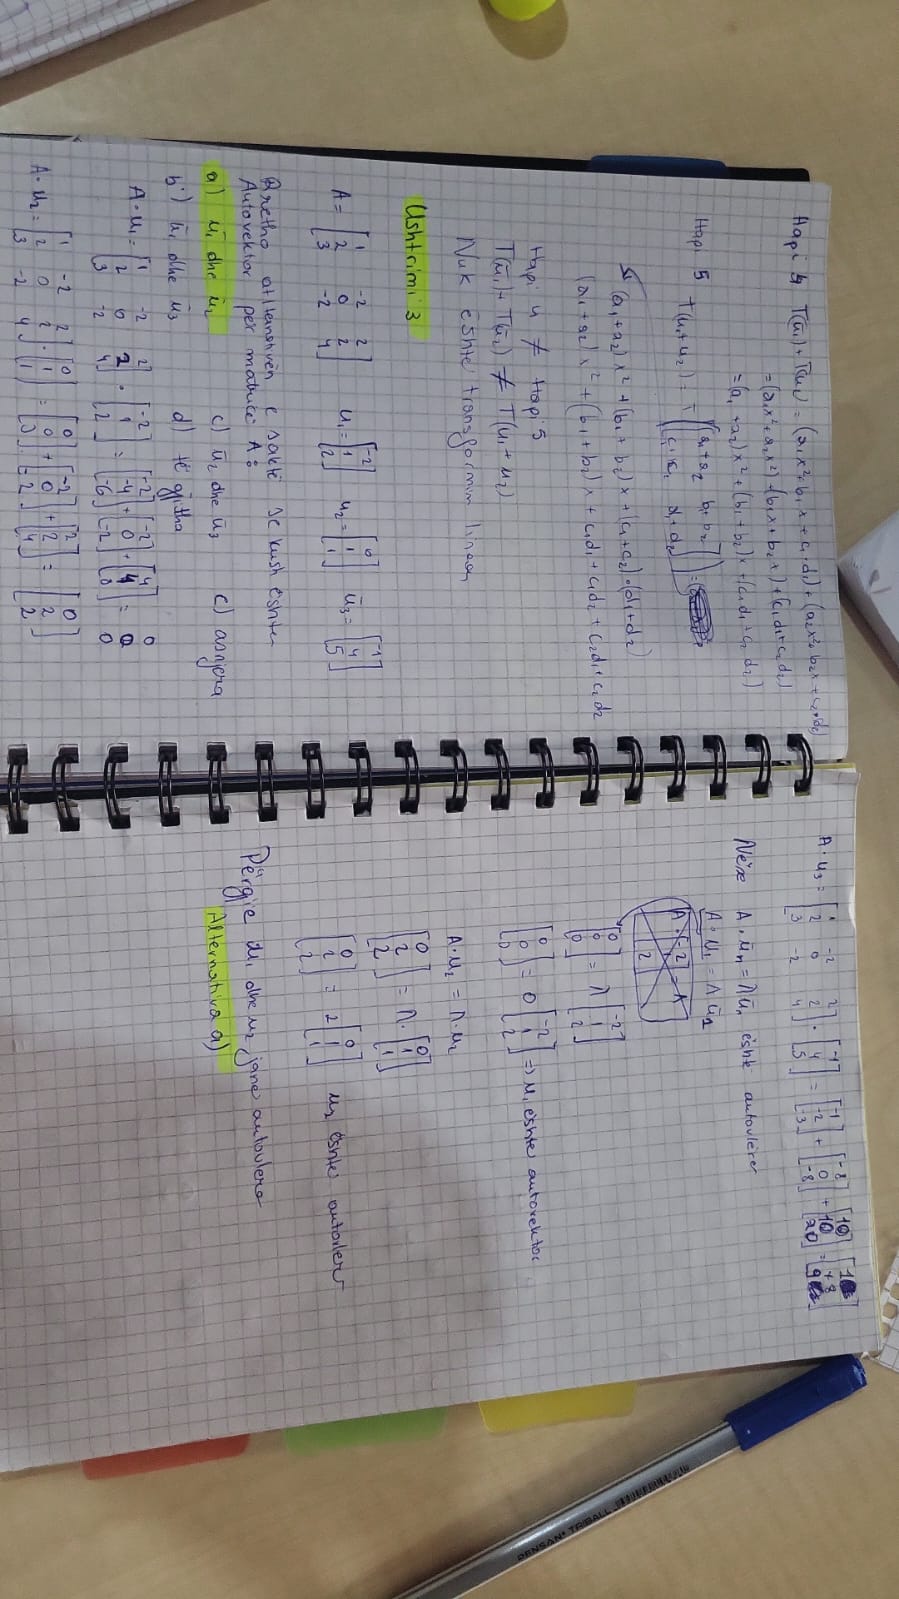 Hapi 4 T(ū₁)+T(u₂) = (a₁x²+b₁x+c₁·d₁)+(a₂x²+b₂x+c₂·d₂)
=(a₁x²+a₂x²)+(b₁x+b₂x)+(c₁d₁+c₂d₂)
=(a₁+a₂)x²+(b₁+b₂)x+(c₁d₁+c₂d₂)
Hapi 5 T(u₁+u₂) = T
(a₁+a₂)x²+(b₁+b₂)x+(c₁+c₂)·(d₁+d₂)
(a₁+a₂)x²+(b₁+b₂)x+c₁d₁+c₁d₂+c₂d₁+c₂d₂
Hapi 4 ≠ hapi 5
T(ū₁)+T(ū₂) ≠ T(u₁+u₂)
Nuk është transformim linear
Ushtrimi 3
A = [1 -2 2; 2 0 2; 3 -2 4] u₁=[-2; 1; 2] u₂=[0; 1; 1] ū₃=[-1; 4; 5]
Rretho atlernativën e saktë se kush është
Autovektor për matricë A:
a) ū₁ dhe ū₂ c) ū₂ dhe ū₃ c) asnjera
b) ū₁ dhe ū₃ d) të gjitha
A·u₁=[1 -2 2; 2 0 2; 3 -2 4]·[-2; 1; 2]=[-2; -4; -6]+[-2; 0; -2]+[4; 4; 8]= 0 0 0
A·u₂=[1 -2 2; 2 0 2; 3 -2 4]·[0; 1; 1]=[0; 0; 0]+[-2; 0; -2]+[2; 2; 4]=[0; 2; 2]
A·u₃=[1 -2 2; 2 0 2; 3 -2 4]·[-1; 4; 5]=[-1; -2; -3]+[-8; 0; -8]+[10; 10; 20]=
Nëse A·ūn=λū₁ është autovlerë
A·u₁=λū₁
[0; 0; 0]=λ[-2; 1; 2]
[0; 0; 0]=0[-2; 1; 2]=>u₁ është autovektor
A·u₂=λ·u₂
[0; 2; 2]=λ·[0; 1; 1]
[0; 2; 2]=2[0; 1; 1] u₂ është autovlerë
Përgjie u₁ dhe u₂ jane autovlera
Alternativa a)
PENSAN' TRIBALL